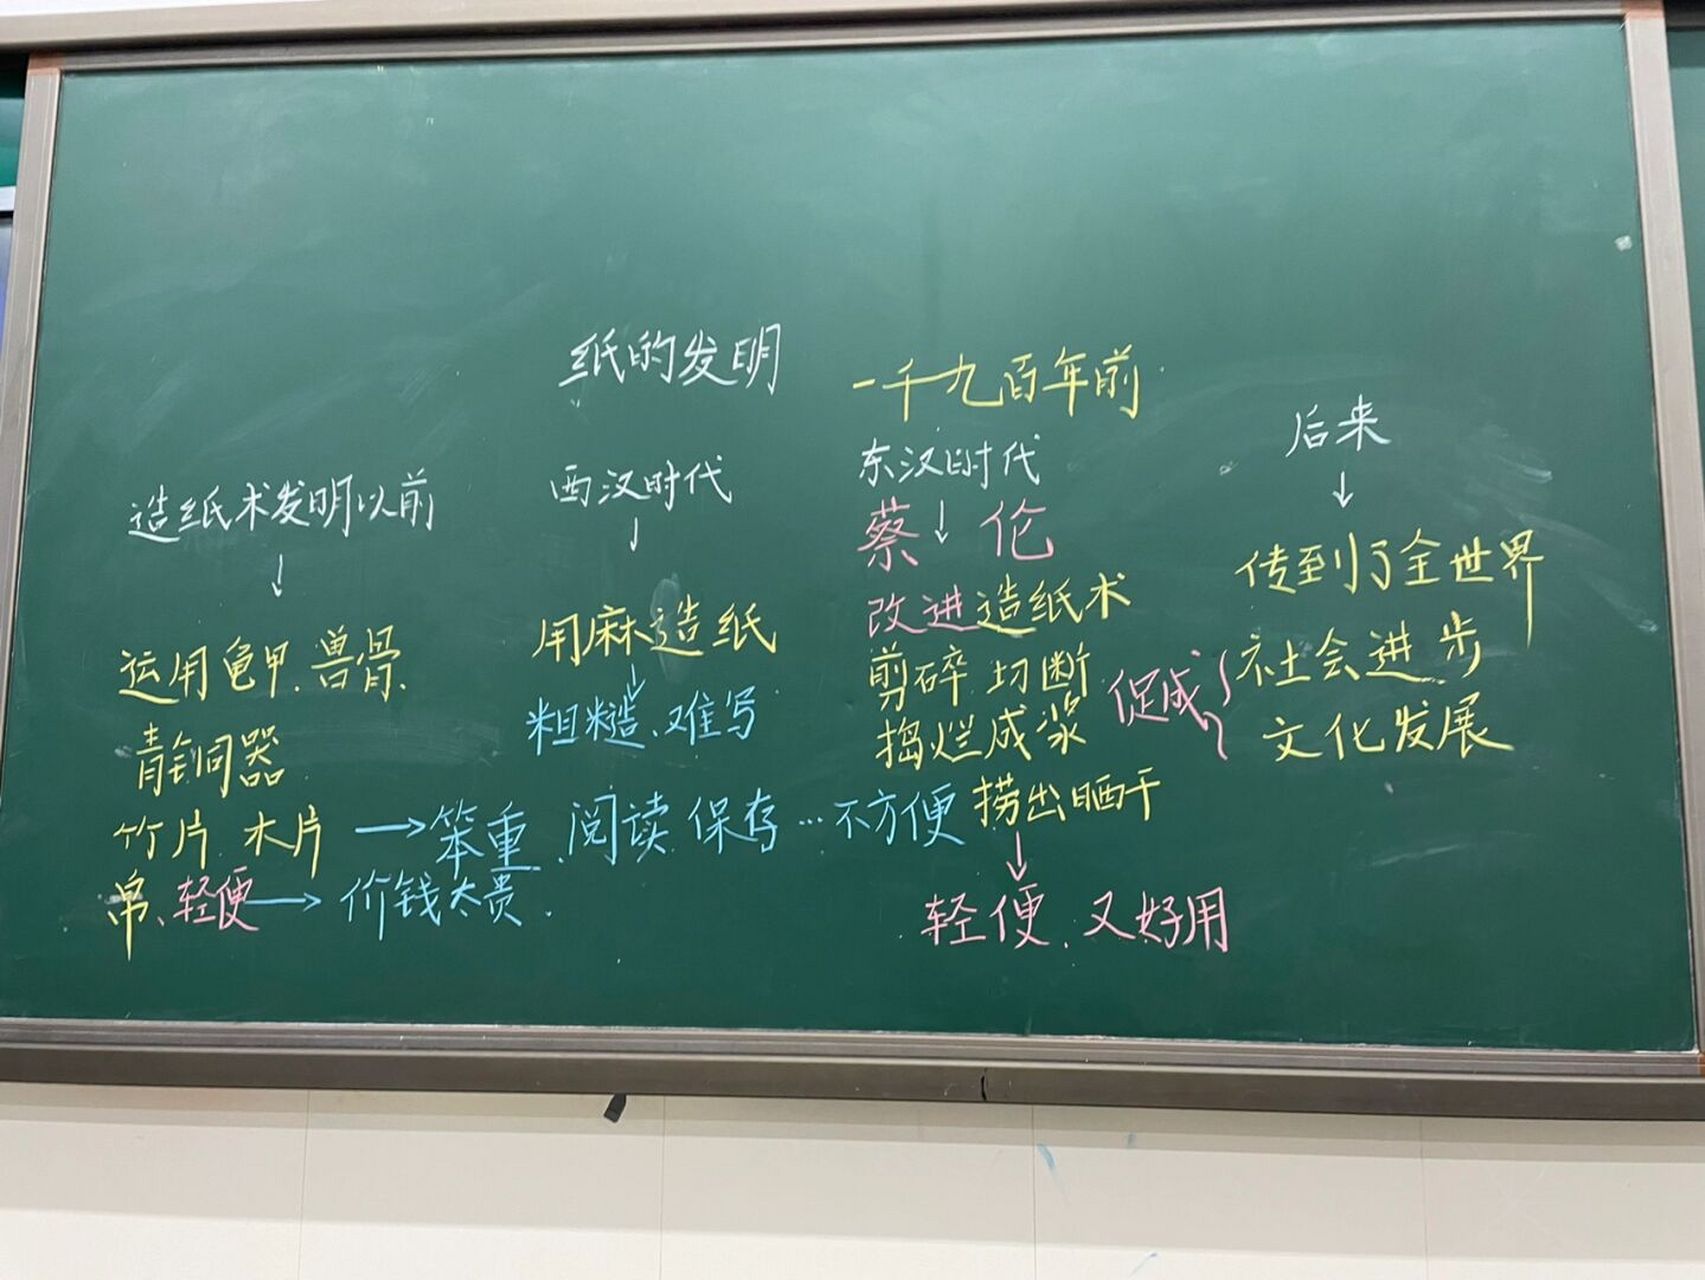 纸的发明
造纸术发明以前
↓
运用龟甲、兽骨、
青铜器
竹片、木片 → 笨重、阅读 保存…不方便
帛、轻便 → 价钱太贵.
西汉时代
↓
用麻造纸
↓
粗糙、难写
一千九百年前
东汉时代
↓
蔡伦
改进造纸术
剪碎 切断
捣烂成浆
捞出晒干
↓
轻便、又好用
后来
↓
传到了全世界
促成{社会进步
文化发展